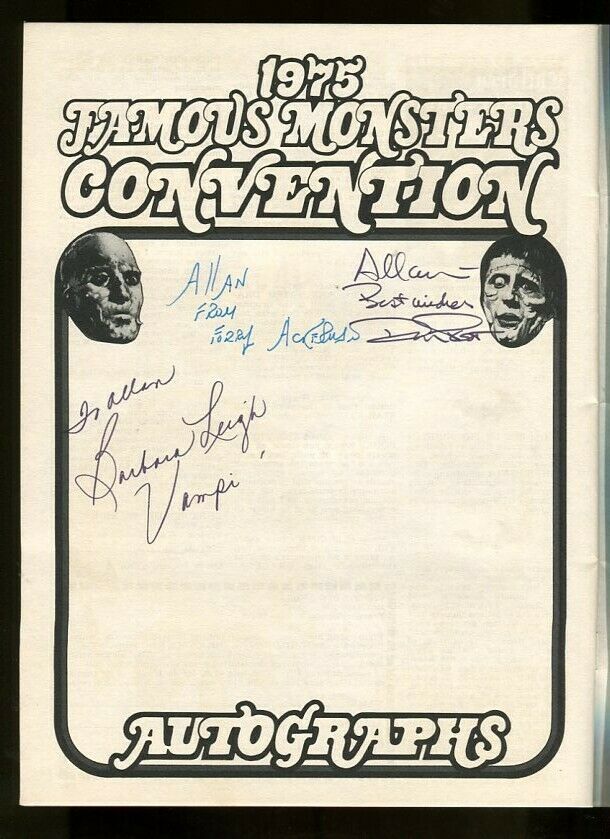 1975
FAMOUS MONSTERS
CONVENTION
Allan
FROM
FORRY ACKERMAN
Allan -
Best wishes
To Allan
Barbara Leigh
Vampi
AUTOGRAPHS